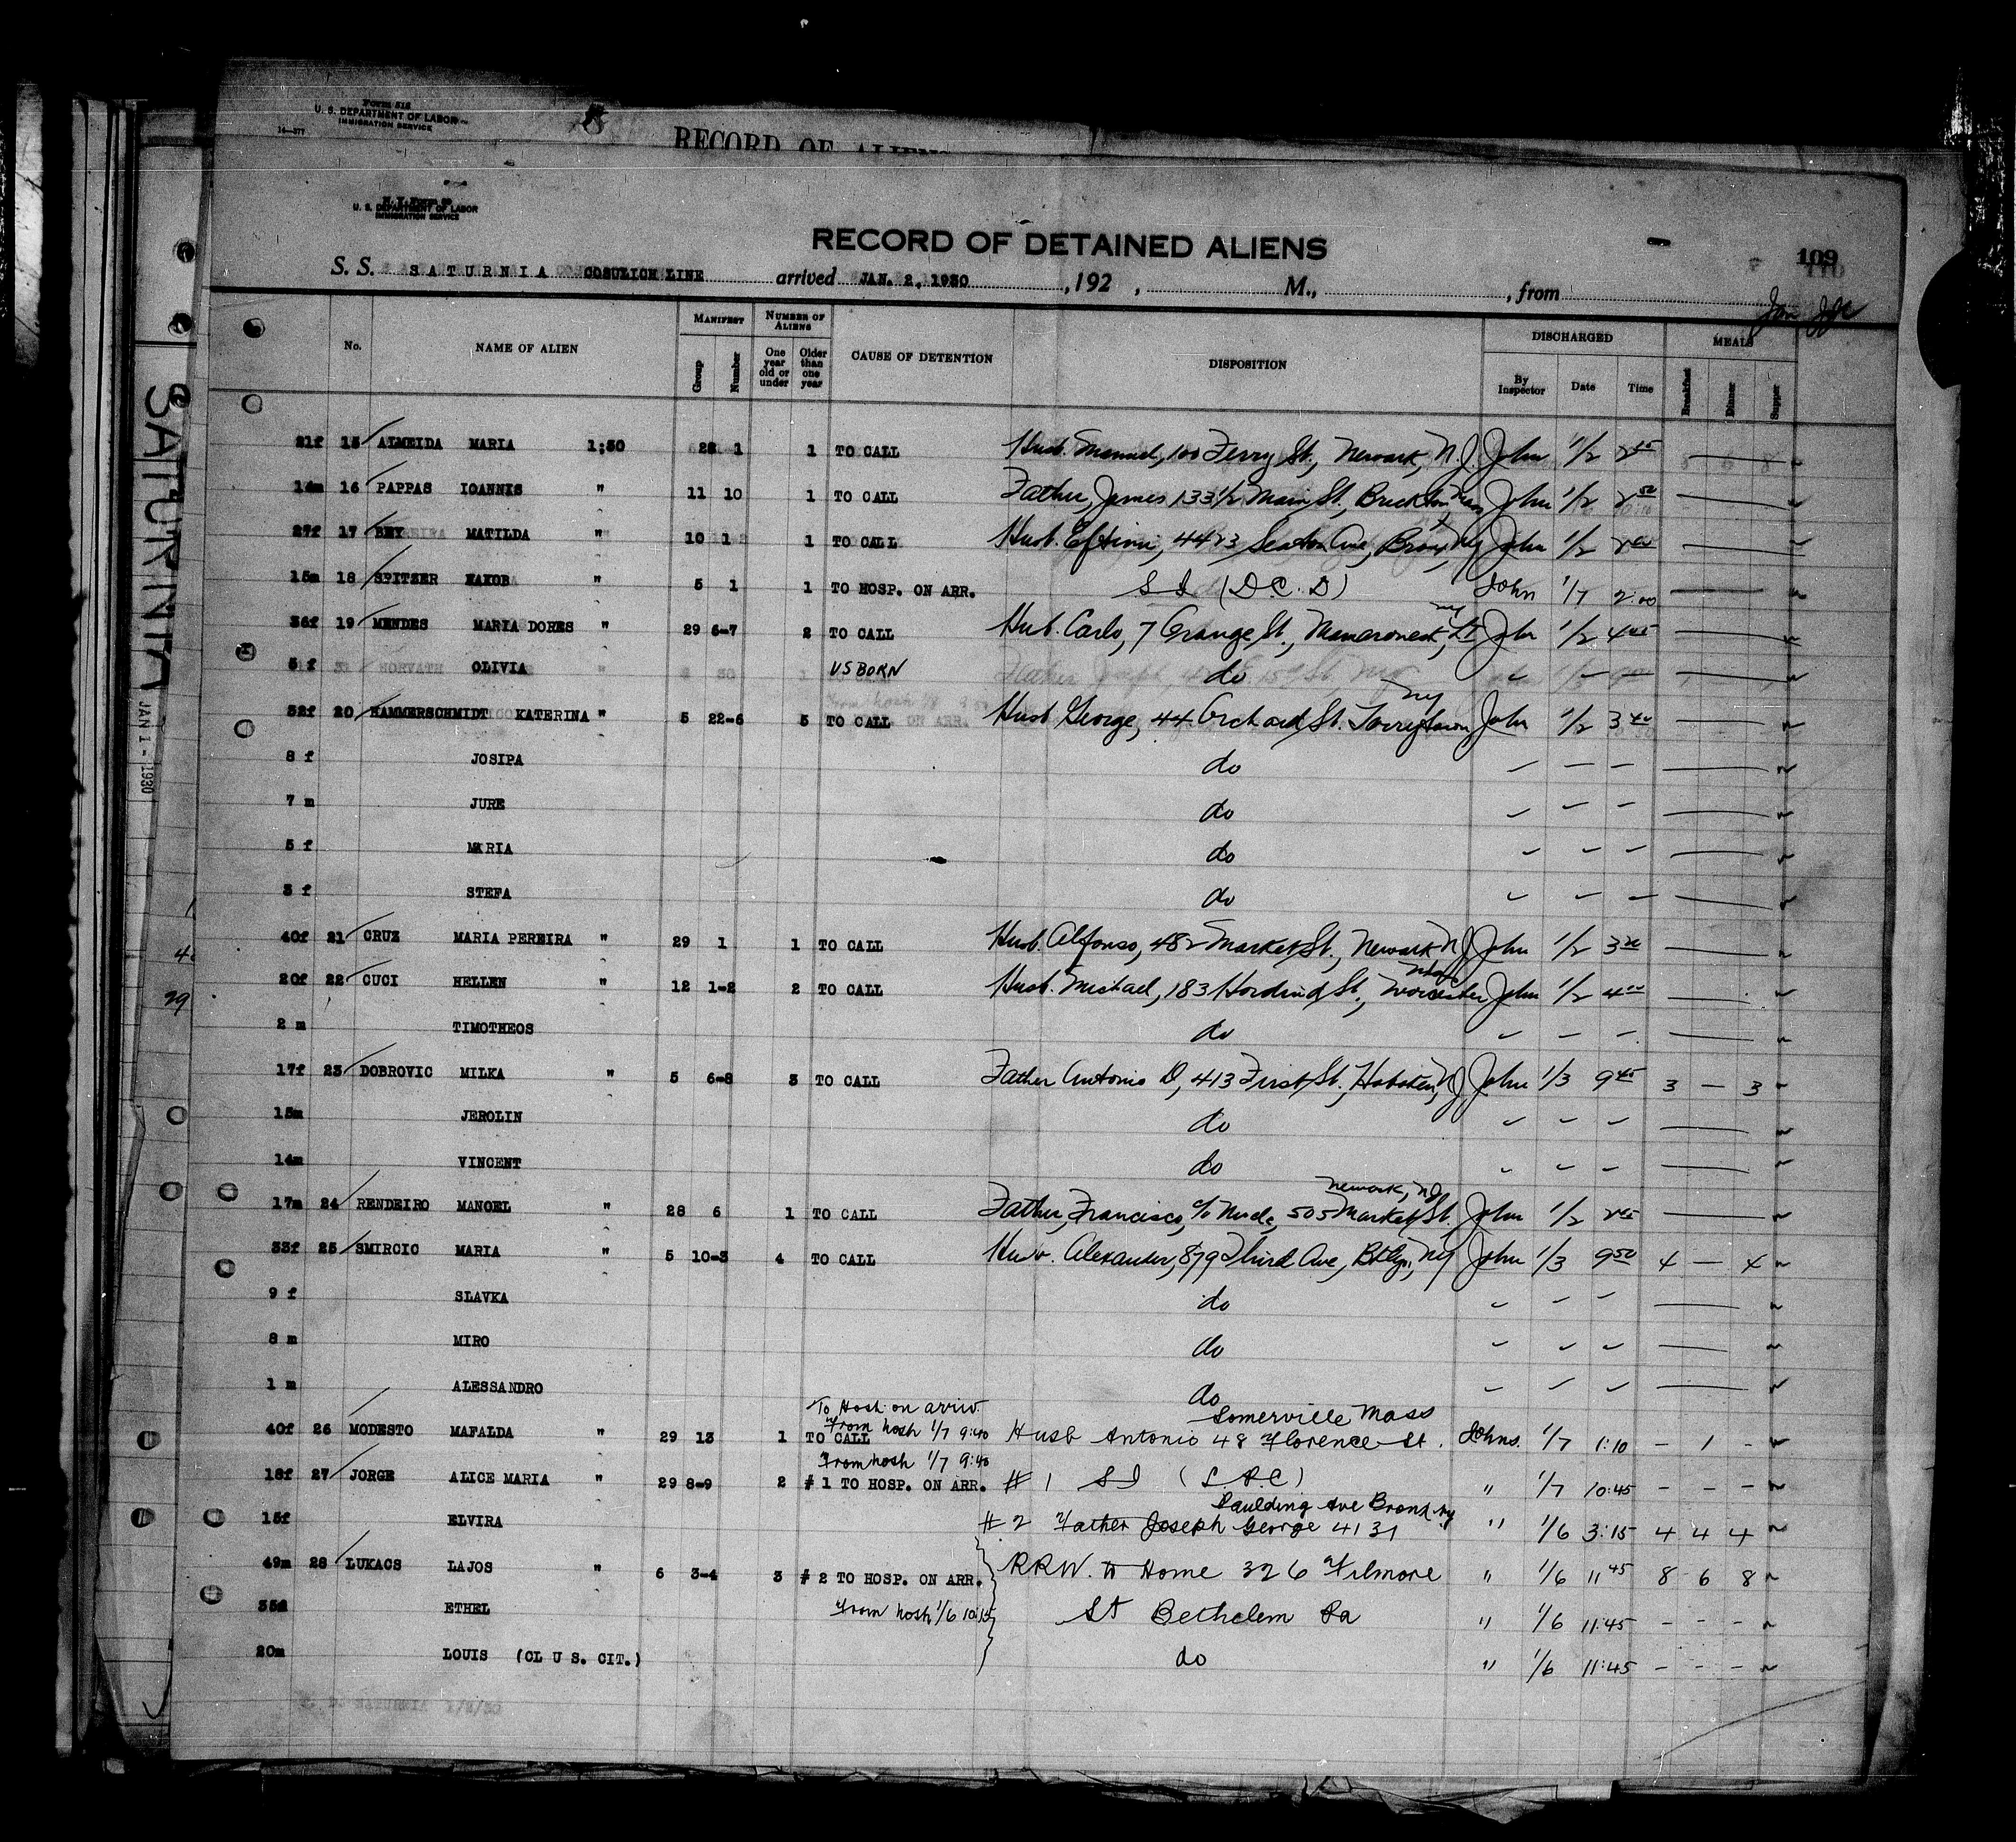 FORM 518
U. S. DEPARTMENT OF LABOR
IMMIGRATION SERVICE
14—377
RECORD OF ALIENS
U. S. DEPARTMENT OF LABOR
IMMIGRATION SERVICE
RECORD OF DETAINED ALIENS
109
110
S. S. SATURNIA COSULICH LINE arrived JAN. 2, 1930 , 192 , M., , from
No. NAME OF ALIEN MANIFEST Group Number NUMBER OF ALIENS One year old or under Older than one year CAUSE OF DETENTION DISPOSITION DISCHARGED By Inspector Date Time MEALS Breakfast Dinner Supper
SATURNIA
JAN 1 - 1930
21f 15 ALMEIDA MARIA 1;30 28 1 1 TO CALL Husb. Manuel, 100 Ferry St., Newark, N.J. John 1/2 2 45
14m 16 PAPPAS IOANNIS " 11 10 1 TO CALL Father, James 133 1/2 Main St., Brockton Mass John 1/2 2 50
27f 17 BEY MATILDA " 10 1 1 TO CALL Husb. Eftim, 4423 Seaton Ave, Bronx, NY John 1/2
15m 18 SPITZER JAKOB " 5 1 1 TO HOSP. ON ARR. S I (D.C.D) John 1/7 2:00
36f 19 MENDES MARIA DORES " 29 6-7 2 TO CALL Husb. Carlo, 7 Grange St., Mamaroneck, NY John 1/2 4 45
5 f OLIVIA US BORN do
32f 20 HAMMERSCHMIDT KATERINA " 5 22-6 5 TO CALL Husb George, 44 Orchard St. Tarrytown NY John 1/2 3 40
8 f JOSIPA do
7 m JURE do
5 f MARIA do
3 f STEFA do
40f 21 CRUZ MARIA PEREIRA " 29 1 1 TO CALL Husb. Alfonso, 482 Market St., Newark NJ John 1/2 3 20
20f 22 CUCI HELLEN " 12 1-2 2 TO CALL Husb. Michael, 183 Harding St., Worcester Mass John 1/2 4 00
2 m TIMOTHEOS do
17f 23 DOBROVIC MILKA " 5 6-8 3 TO CALL Father Antonio D, 413 First St., Hoboken, NJ John 1/3 9 45 3 — 3
15m JEROLIN do
14m VINCENT do
17m 24 RENDEIRO MANOEL " 28 6 1 TO CALL Father, Francisco, c/o Nude, 505 Market St. Newark, NJ John 1/2 2 45
33f 25 SMIRCIC MARIA " 5 10-3 4 TO CALL Husb. Alexander, 879 Third Ave, Bklyn, NY John 1/3 9 50 4 — 4
9 f SLAVKA do
8 m MIRO do
1 m ALESSANDRO do
To Hosp. on arriv.
From hosp 1/7 9:40
40f 26 MODESTO MAFALDA " 29 13 1 TO CALL Husb Antonio 48 Florence St. Somerville Mass Johns. 1/7 1:10 - 1 -
From hosp 1/7 9:40
18f 27 JORGE ALICE MARIA " 29 8-9 2 # 1 TO HOSP. ON ARR. # 1 S I (L P C) " 1/7 10:45 - - -
15f ELVIRA # 2 Father Joseph George 4131 Paulding Ave Bronx NY " 1/6 3:15 4 4 4
49m 28 LUKACS LAJOS " 6 3-4 3 # 2 TO HOSP. ON ARR. RRW. to Home 326 Filmore " 1/6 11 45 8 6 8
35f ETHEL From hosp 1/6 10:15 St Bethelem Pa " 1/6 11:45 - - -
20m LOUIS (CL U S. CIT.) do " 1/6 11:45 - - -
S. S. SATURNIA 1/2/30